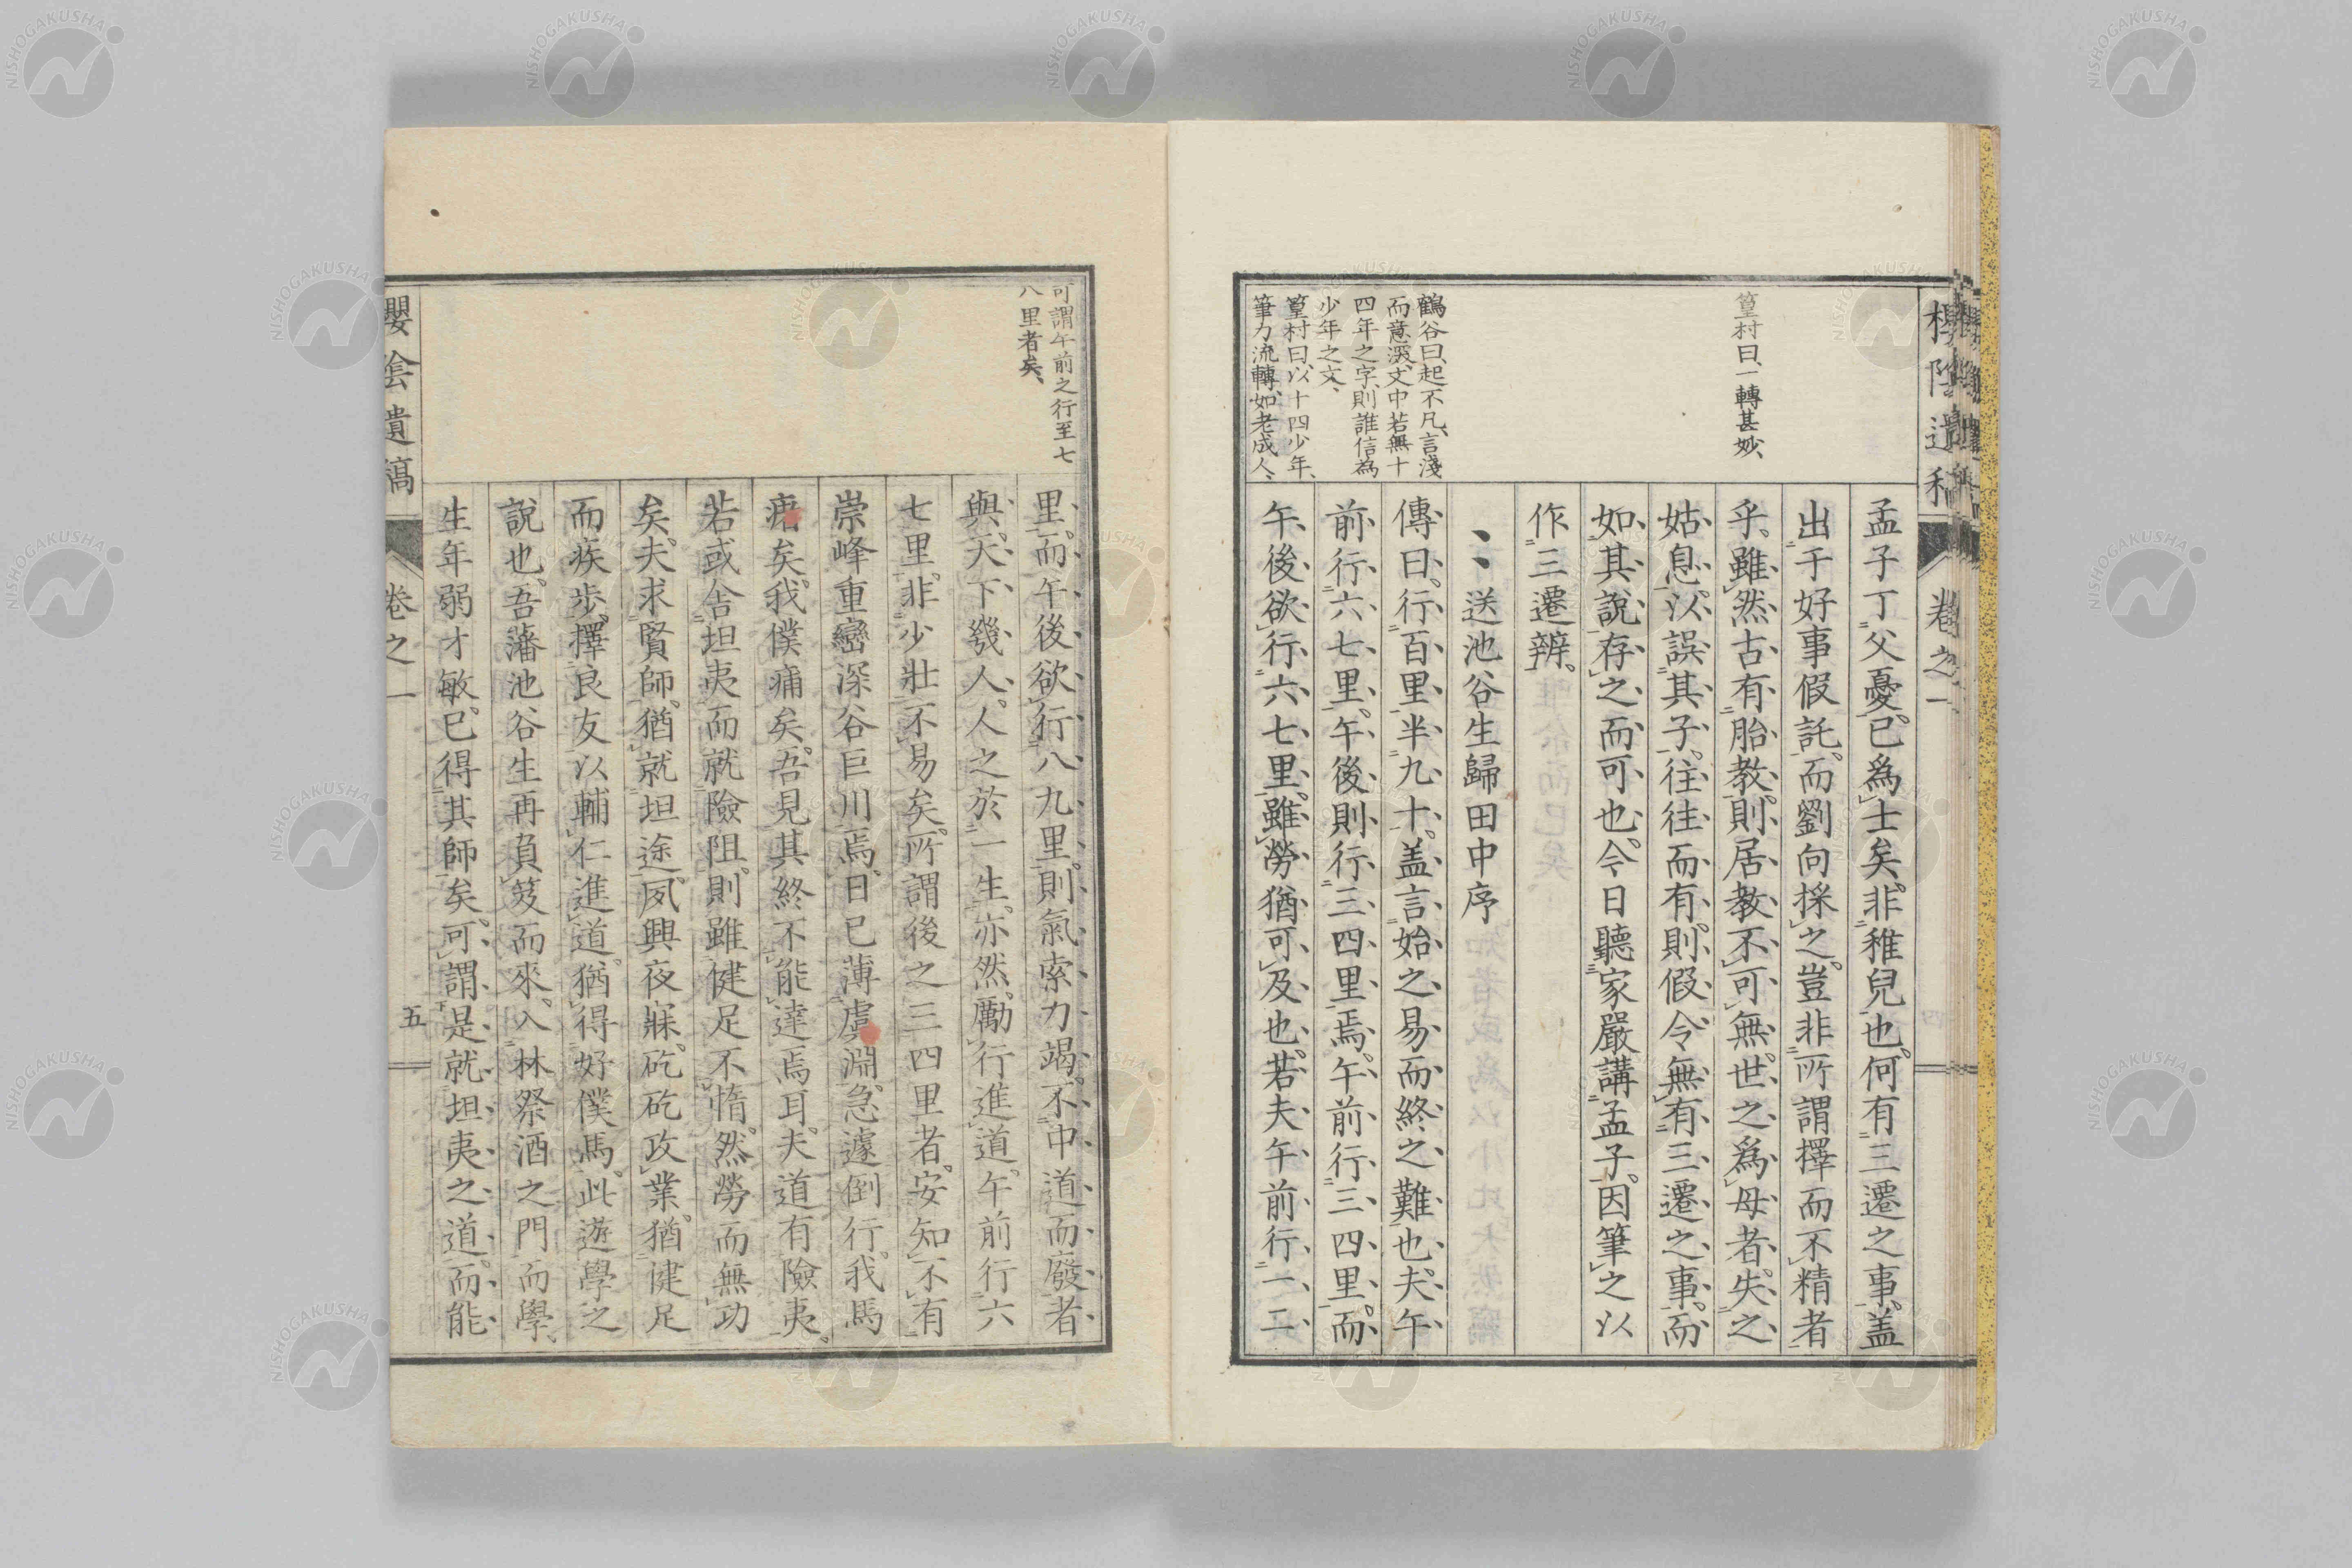 孟子丁父憂。已爲士矣。非稚兒也。何有三遷之事。盖
出于好事假託。而劉向採之。豈非所謂擇而不精者
乎。雖然古有胎教。則居教不可無。世之爲母者。失之
姑息。以誤其子。往往而有。則假令無有三遷之事。而
如其說存之而可也。今日聽家嚴講孟子。因筆之以
作三遷辨。
送池谷生歸田中序
傳曰。行百里半九十。盖言始之易而終之難也。夫午
前行六七里。午後則行三四里焉。午前行三四里。而
午後欲行六七里。雖勞猶可及也。若夫午前行一二
篁村曰、一轉甚妙、
鶴谷曰、起不凡、言淺
而意深、文中若無十
四年之字、則誰信為
少年之文、
篁村曰、以十四少年、
筆力流轉、如老成人、
卷之一
里。而午後欲行八九里。則氣索力竭。不中道而廢者。
與天下幾人。人之於一生。亦然。勵行進道。午前行六
七里。非少壯不易矣。所謂後之三四里者。安知不有
崇峰重巒深谷巨川焉。日已薄虞淵。急遽倒行。我馬
瘏矣。我僕痡矣。吾見其終不能達焉耳。夫道有險夷。
若或舍坦夷而就險阻。則雖健足不惰。然勞而無功
矣。夫求賢師。猶就坦途。夙興夜寐。矻矻攻業。猶健足
而疾步。擇良友以輔仁進道。猶得好僕馬。此遊學之
說也。吾藩池谷生再負笈而來。入林祭酒之門而學。
生年弱才敏。已得其師矣。可謂是就坦夷之道。而能
可謂午前之行至七
八里者矣、
櫻陰遺稿
卷之一
五